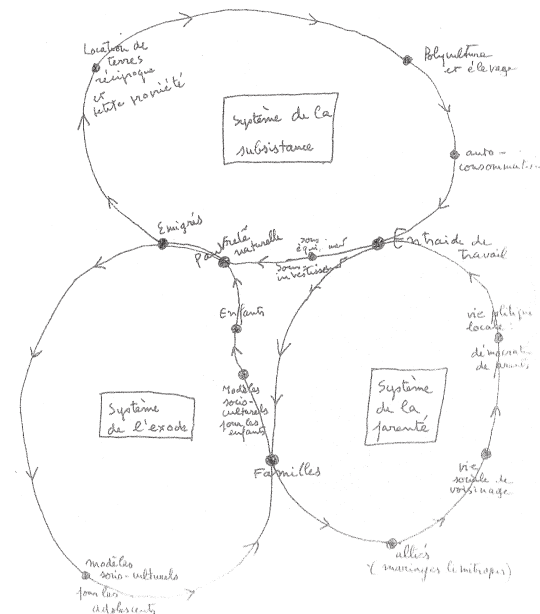 Location de
terres
réciproque
et
petite propriété
Polyculture
et élevage
Système de la
subsistance
auto-
consommation
Emigrés
Pauvreté
naturelle
sous
équipement
sous
investissement
Entraide de
travail
Enfants
Modèles
socio-
culturels
pour les
enfants
vie politique
locale :
démocratie
de
Système
de l'exode
Système
de la
parenté
Familles
vie
sociale de
voisinage
alliés
(mariages limitrophes)
modèles
socio-culturels
pour les
adolescents